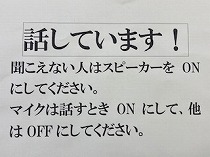 話しています！
聞こえない人はスピーカーを ON
にしてください。
マイクは話すとき ON にして、他
は OFF にしてください。